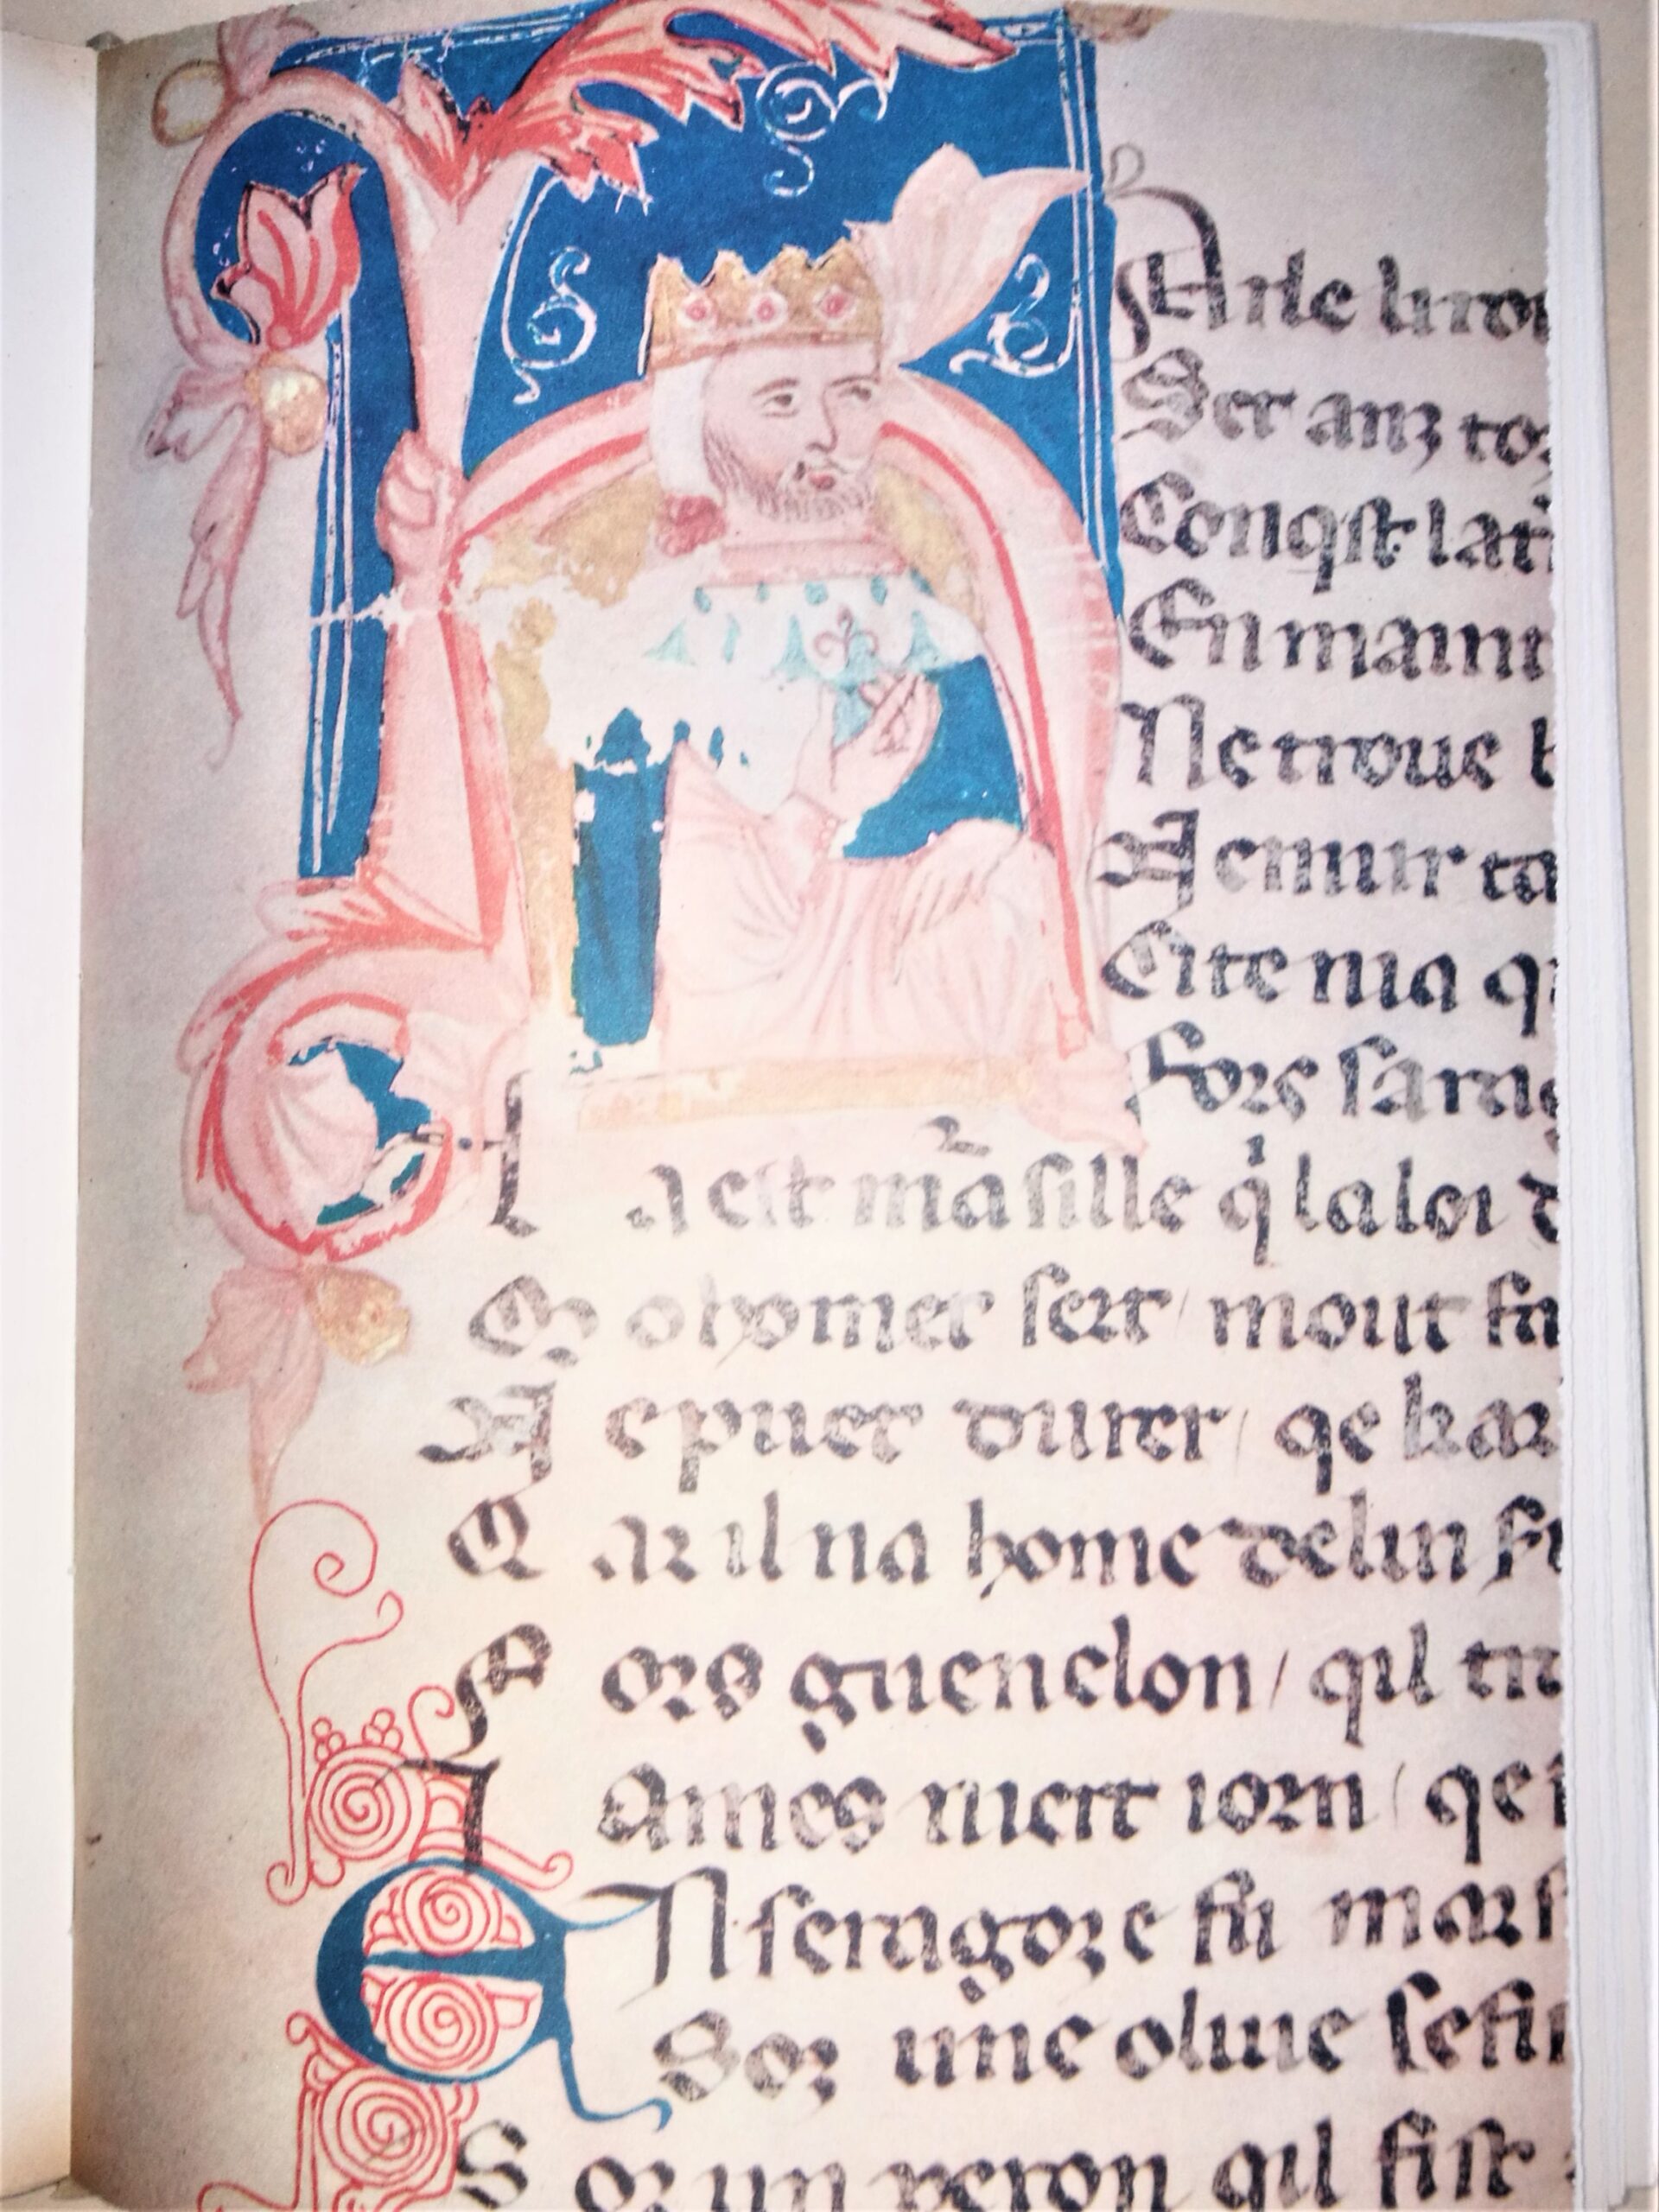 KArle li roi
Set anz to
Conqist la t
En maint
Ne troue b
Ne mur ta
Cite nia q
Fors sarag
La est marsille qi la loi d
Mohomet sert / mout fu
Ne puet durer / qe kar
Car il na home de lui
Fors guenelon / qil tr
Iames niert iorn / qe
EN seragoze fu mars
Soz une oliue se
Soz un peron qil fist